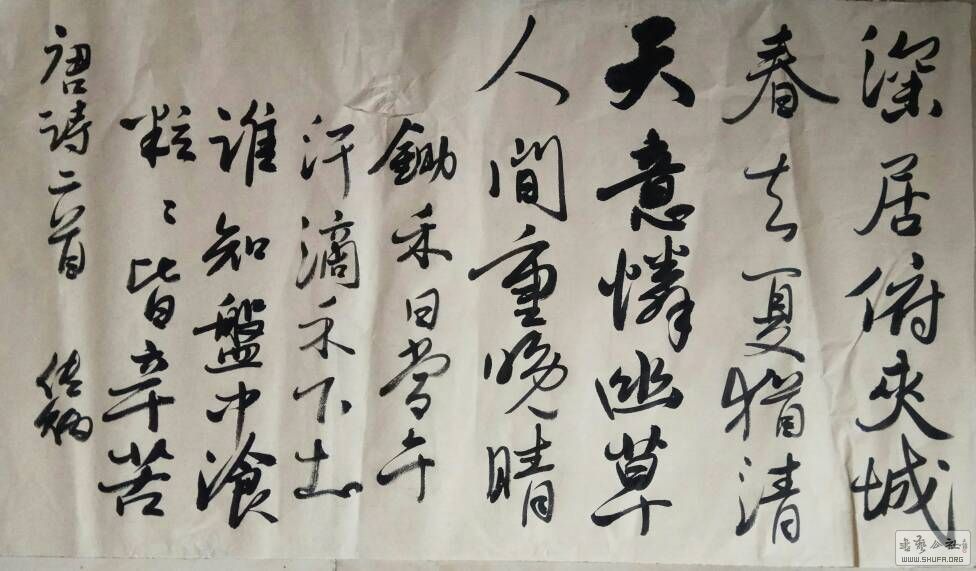 深居俯夾城
春去夏猶清
天意憐幽草
人間重晚晴
鋤禾日當午
汗滴禾下土
誰知盤中湌
粒〻皆辛苦
唐詩二首
书艺公社
WWW.SHUFA.ORG